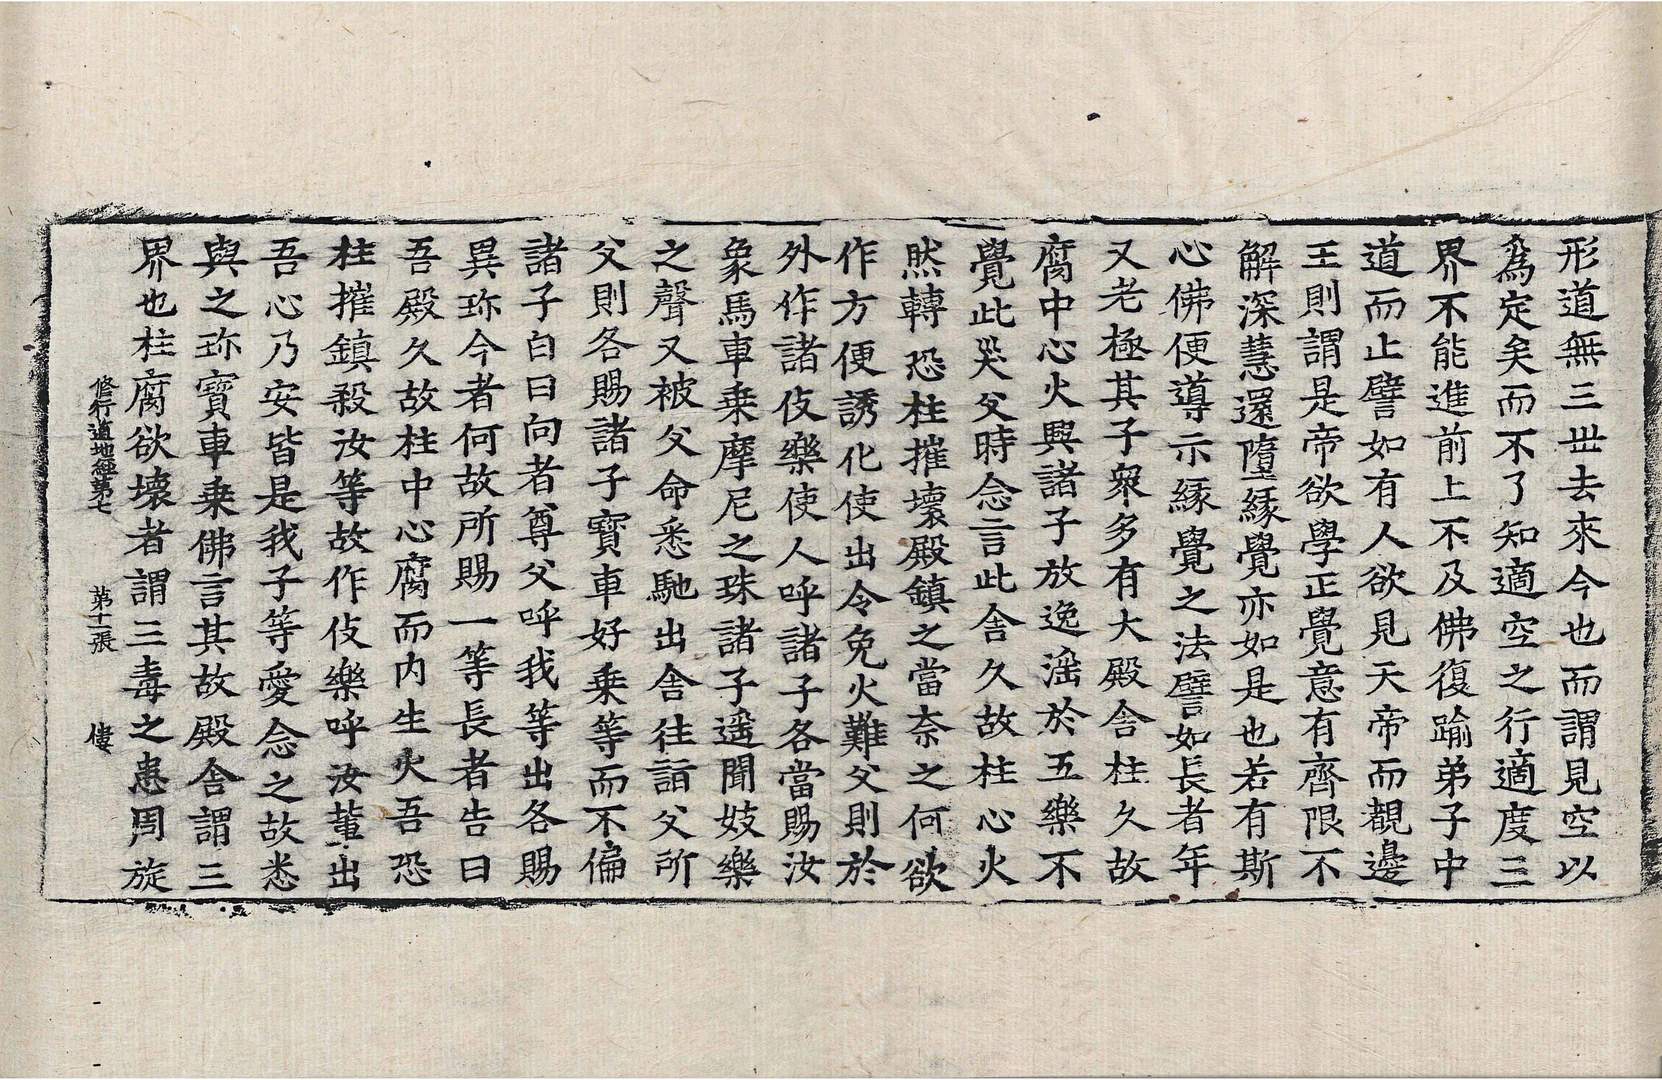 形道無三丗去來今也而謂見空以
爲定矣而不了知適空之行適度三
界不能進前上不及佛復踰弟子中
道而止譬如有人欲見天帝而覩邊
王則謂是帝欲學正覺意有齊限不
解深慧還墮緣覺亦如是也若有斯
心佛便導示緣覺之法譬如長者年
又老極其子衆多有大殿舍柱久故
腐中心火興諸子放逸滛於五樂不
覺此災父時念言此舍久故柱心火
然轉恐柱摧壞殿鎮之當奈之何欲
作方便誘化使出令免火難父則於
外作諸伎樂使人呼諸子各當賜汝
象馬車乗摩尼之珠諸子遥聞妓樂
之聲又被父命悉馳出舍往詣父所
父則各賜諸子寶車好乗等而不偏
諸子白曰向者尊父呼我等出各賜
異珎今者何故所賜一等長者告曰
吾殿久故柱中心腐而内生火吾恐
柱摧鎮殺汝等故作伎樂呼汝輩出
吾心乃安皆是我子等愛念之故悉
與之珎寶車乗佛言其故殿舍謂三
界也柱腐欲壞者謂三毒之患周旋
修行道地經第七 第十一張 僂